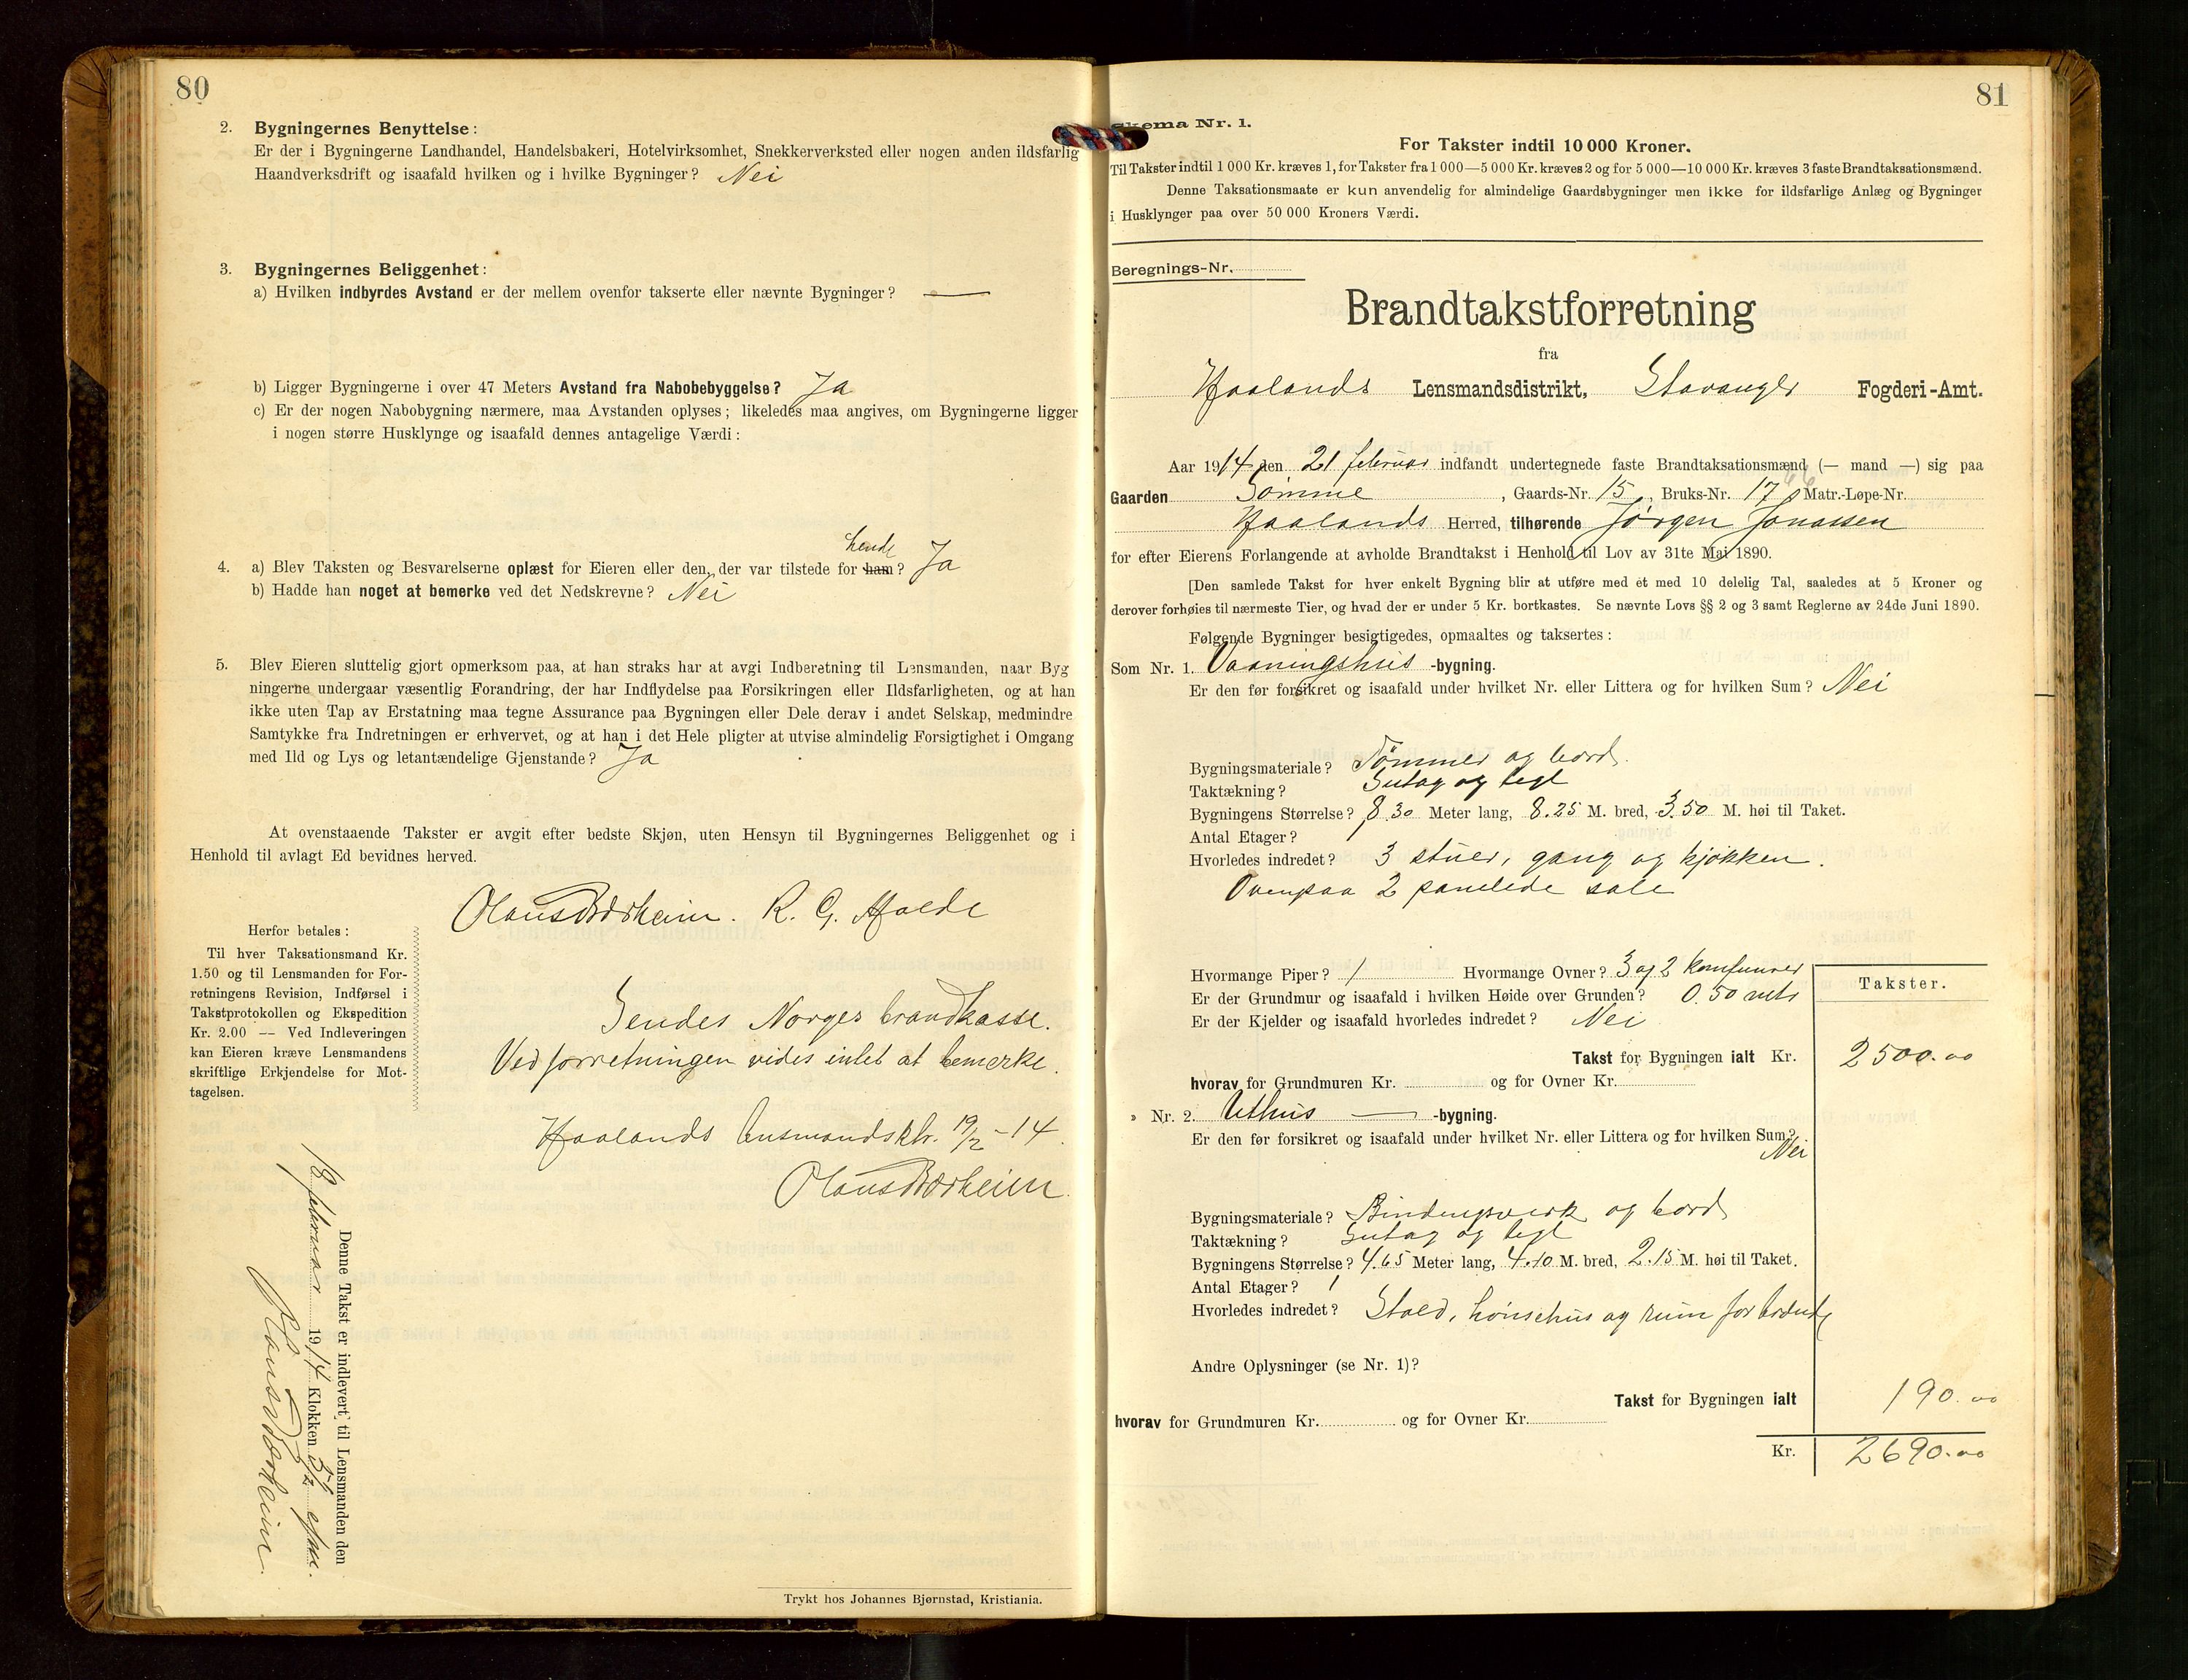 80
2. Bygningernes Benyttelse:
Er der i Bygningerne Landhandel, Handelsbakeri, Hotelvirksomhet, Snekkerverksted eller nogen anden ildsfarlig
Haandverksdrift og isaafald hvilken og i hvilke Bygninger? Nei
3. Bygningernes Beliggenhet:
a) Hvilken indbyrdes Avstand er der mellem ovenfor takserte eller nævnte Bygninger? —
b) Ligger Bygningerne i over 47 Meters Avstand fra Nabobebyggelse? Ja
c) Er der nogen Nabobygning nærmere, maa Avstanden oplyses; likeledes maa angives, om Bygningerne ligger
i nogen større Husklynge og isaafald dennes antagelige Værdi:
hende
4. a) Blev Taksten og Besvarelserne oplæst for Eieren eller den, der var tilstede for ham? Ja
b) Hadde han noget at bemerke ved det Nedskrevne? Nei
5. Blev Eieren sluttelig gjort opmerksom paa, at han straks har at avgi Indberetning til Lensmanden, naar Byg
ningerne undergaar væsentlig Forandring, der har Indflydelse paa Forsikringen eller Ildsfarligheten, og at han
ikke uten Tap av Erstatning maa tegne Assurance paa Bygningen eller Dele derav i andet Selskap, medmindre
Samtykke fra Indretningen er erhvervet, og at han i det Hele pligter at utvise almindelig Forsigtighet i Omgang
med Ild og Lys og letantændelige Gjenstande? Ja
At ovenstaaende Takster er avgit efter bedste Skjøn, uten Hensyn til Bygningernes Beliggenhet og i
Henhold til avlagt Ed bevidnes herved.
Olaus Bærheim. R. G. Halde
Herfor betales:
Til hver Taksationsmand Kr.
1.50 og til Lensmanden for For-
retningens Revision, Indførsel i
Takstprotokollen og Ekspedition
Kr. 2.00 — Ved Indleveringen
kan Eieren kræve Lensmandens
skriftlige Erkjendelse for Mot-
tagelsen.
Sendes Norges brandkasse.
Ved forretningen vides intet at bemerke.
Haalands lensmandsktr. 19/2-14.
Olaus Bærheim
Denne Takst er indlevert til Lensmanden den
18 februar 1914 Klokken 5 1/2 efm.
Olaus Bærheim
Trykt hos Johannes Bjørnstad, Kristiania.
81
Skema Nr. 1.
For Takster indtil 10 000 Kroner.
Til Takster indtil 1 000 Kr. kræves 1, for Takster fra 1 000—5 000 Kr. kræves 2 og for 5 000—10 000 Kr. kræves 3 faste Brandtaksationsmænd.
Denne Taksationsmaate er kun anvendelig for almindelige Gaardsbygninger men ikke for ildsfarlige Anlæg og Bygninger
i Husklynger paa over 50 000 Kroners Værdi.
Beregnings-Nr.
Brandtakstforretning
fra
Haalands Lensmandsdistrikt, Stavanger Fogderi-Amt.
Aar 1914 den 21 februar indfandt undertegnede faste Brandtaksationsmænd (— mand —) sig paa
Gaarden Sømme, Gaards-Nr. 15, Bruks-Nr. 17 Matr.-Løpe-Nr.
Haalands Herred, tilhørende Jørgen Jonassen
for efter Eierens Forlangende at avholde Brandtakst i Henhold til Lov av 31te Mai 1890.
[Den samlede Takst for hver enkelt Bygning blir at utføre med et med 10 delelig Tal, saaledes at 5 Kroner og
derover forhøies til nærmeste Tier, og hvad der er under 5 Kr. bortkastes. Se nævnte Lovs §§ 2 og 3 samt Reglerne av 24de Juni 1890.
Følgende Bygninger besigtigedes, opmaaltes og taksertes:
Som Nr. 1. Vaaningshus -bygning.
Er den før forsikret og isaafald under hvilket Nr. eller Littera og for hvilken Sum? Nei
Bygningsmateriale? Tømmer og bord.
Taktækning? Sutag og tegl
Bygningens Størrelse? 8.30 Meter lang, 8.25 M. bred, 3.50 M. høi til Taket.
Antal Etager? 1
Hvorledes indredet? 3 stuer, gang og kjøkken.
Ovenpaa 2 panelede sale
Hvormange Piper? 1 Hvormange Ovner? 3 og 2 komfunrer
Takster.
Er der Grundmur og isaafald i hvilken Høide over Grunden? 0.50 mtr
Er der Kjelder og isaafald hvorledes indredet? Nei
Takst for Bygningen ialt Kr. 2500.00
hvorav for Grundmuren Kr. og for Ovner Kr.
» Nr. 2. Uthus — -bygning.
Er den før forsikret og isaafald under hvilket Nr. eller Littera og for hvilken Sum?
Nei
Bygningsmateriale? Bindingsverk og bord
Taktækning? Sutag og tegl
Bygningens Størrelse? 4.65 Meter lang, 4.10 M. bred, 2.15 M. høi til Taket.
Antal Etager? 1
Hvorledes indredet? Stald, hønsehus og rum for brænde
Andre Oplysninger (se Nr. 1)?
Takst for Bygningen ialt 190.00
hvorav for Grundmuren Kr. og for Ovner Kr.
Kr. 2690.00